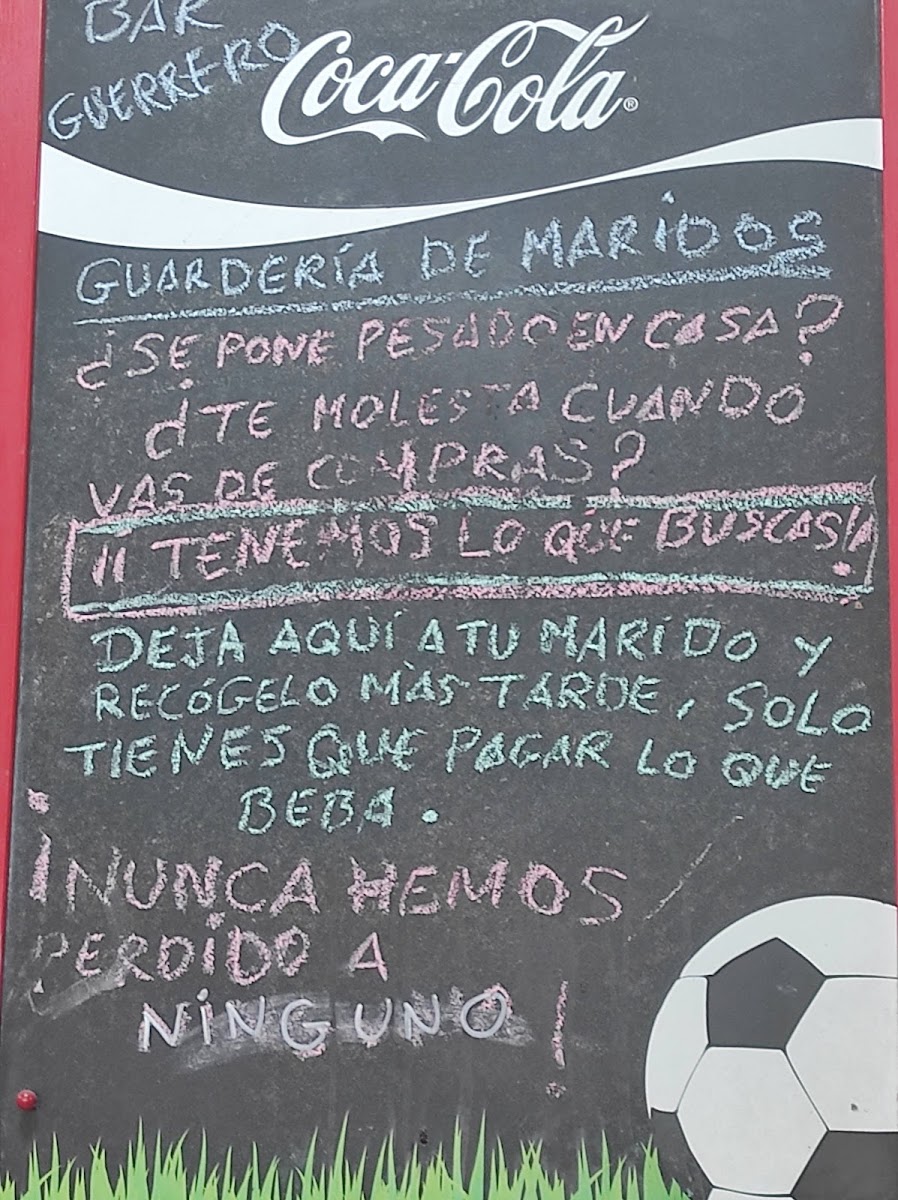 BAR
GUERRERO
Coca-Cola®
GUARDERÍA DE MARIDOS
¿SE PONE PESADO EN CASA?
¿TE MOLESTA CUANDO
VAS DE COMPRAS?
¡¡TENEMOS LO QUE BUSCAS!!
DEJA AQUÍ A TU MARIDO Y
RECÓGELO MÀS TARDE, SOLO
TIENES QUE PAGAR LO QUE
BEBA.
¡NUNCA HEMOS
PERDIDO A
NINGUNO!